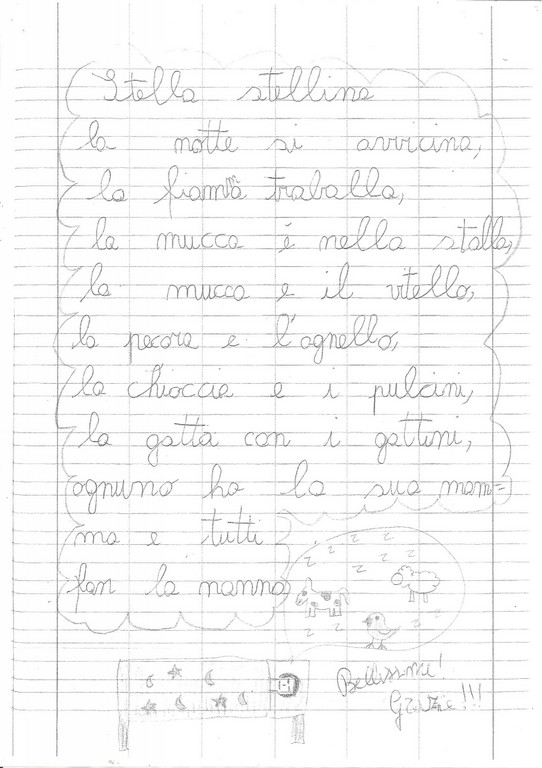 Stella stellina
la notte si avvicina,
la fiamma traballa,
la mucca é nella stalla,
la mucca e il vitello,
la pecora e l'agnello,
la chioccia e i pulcini,
la gatta con i gattini,
ognuno ha la sua mam=
ma e tutti
fan la nanna
z z z z z z z z
Bellissimi!
Grazie!!!